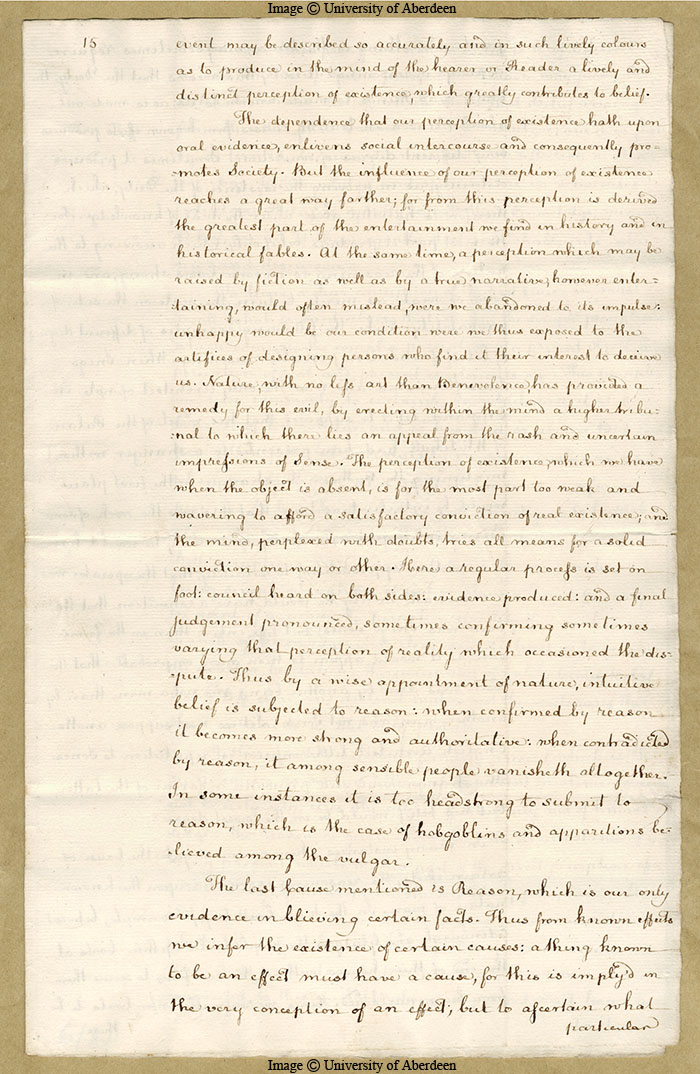 Image © University of Aberdeen
15
event may be described so accurately and in such lively colours
as to produce in the mind of the hearer or Reader a lively and
distinct perception of existence, which greatly contributes to belief.
The dependence that our perception of existence hath upon
oral evidence, enlivens social intercourse and consequently pro-
-motes Society. But the influence of our perception of existence
reaches a great way farther; for from this perception is derived
the greatest part of the entertainment we find in history and in
historical fables. At the same time, a perception which may be
raised by fiction as well as by a true narrative, however enter-
-taining, would often mislead, were we abandoned to its impulse:
unhappy would be our condition were we thus exposed to the
artifices of designing persons who find it their interest to deceive
us. Nature, with no less art than Benevolence, has provided a
remedy for this evil, by erecting within the mind a higher tribu-
-nal to which there lies an appeal from the rash and uncertain
impressions of Sense. The perception of existence, which we have
when the object is absent, is for the most part too weak and
wavering to afford a satisfactory conviction of real existence; and
the mind, perplexed with doubts, tries all means for a solid
conviction one way or other. Here a regular process is set on
foot: council heard on both sides: evidence produced: and a final
judgement pronounced, sometimes confirming sometimes
varying that perception of reality which occasioned the dis-
-pute. Thus by a wise appointment of nature, intuitive
belief is subjected to reason: when confirmed by reason
it becomes more strong and authoritative: when contradicted
by reason, it among sensible people vanisheth altogether.
In some instances it is too headstrong to submit to
reason, which is the case of hobgoblins and apparitions be-
-lieved among the vulgar.
The last Cause mentioned is Reason, which is our only
evidence in blieving certain facts. Thus from known effects
we infer the existence of certain causes: a thing known
to be an effect must have a cause, for this is imply'd in
the very conception of an effect; but to ascertain what
particular
Image © University of Aberdeen